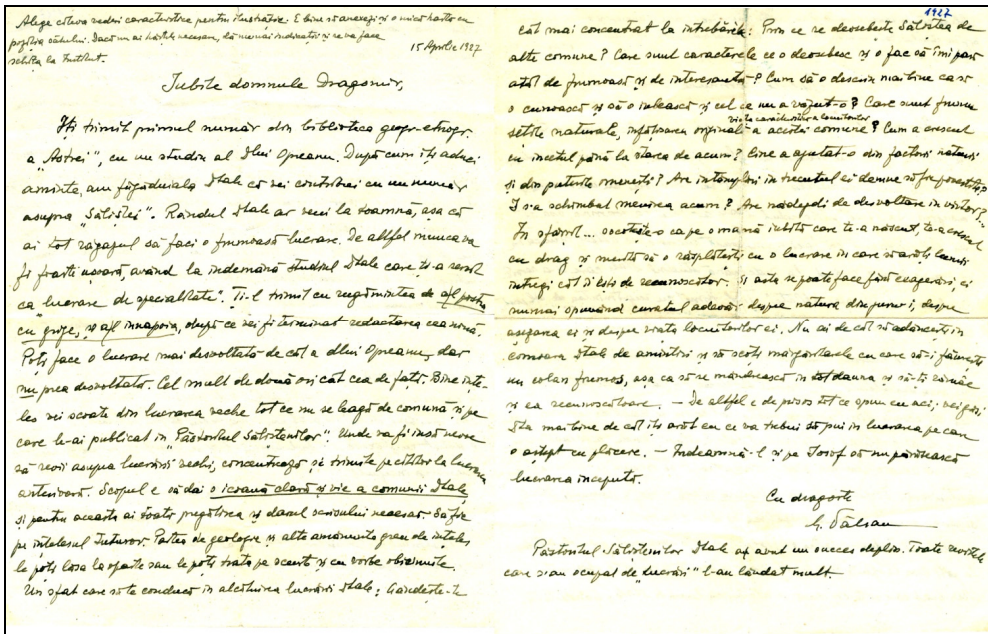 Alege câteva vederi caracteristice pentru ilustrație. E bine să anexezi și o mică hartă cu
poziția satului. Dacă nu ai hărțile necesare, dă numai indicații și se va face
schița la Institut.
15 Aprilie 1927
Iubite domnule Dragomir,
Iți trimit primul număr din biblioteca geogr-etnogr.
a "Astrei", cu un studiu al Dlui Opreanu. După cum iți aduci
aminte, am făgăduiala Dtale că vei contribui cu un număr
asupra "Săliștei". Rândul Dtale ar veni la toamnă, așa că
ai tot răgazul să faci o frumoasă lucrare. De altfel munca va
fi foarte ușoară, având la indemână studiul Dtale care ți-a servit
ca lucrare de specialitate". Ți-l trimit cu rugămintea de a-l păstra
cu grije, și a-l innapoia, după ce vei fi terminat redactarea cea nouă.
Poți face o lucrare mai desvoltată de cât a dlui Opreanu, dar
nu prea desvoltată. Cel mult de două ori cât cea de față. Bine inte-
les vei scoate din lucrarea veche tot ce nu se leagă de comună și pe
care le-ai publicat in "Păstoritul Săliștenilor". Unde va fi insă nevoe
să revii asupra lucrării vechi, concentrează și trimite pe cititor la lucrarea
anterioară. Scopul e să dai o icoană clară și vie a comunii Dtale
și pentru aceasta ai toată pregătirea și darul scrisului necesar. Să fie
pe intelesul tuturor. Partea de geologie și alte amănunte greu de inteles,
le poți lăsa la oparte sau le poți trata pe scurt și cu vorbe obicinuite.
Un sfat care să te conducă in alcătuirea lucrării Dtale: Gândește-te
1927
cât mai concentrat la intrebările: Prin ce se deosebește Săliștea de
alte comune? Care sunt caracterele ce o deosebesc și o fac să imi pară
atât de frumoasă și de interesantă? Cum să o descriu mai bine ca să
o cunoască și să o iubească și cel ce nu a văzut-o? Care sunt frumu
sețile naturale, infățișarea originală a acestei comune? Cum a crescut
viața caracteristică a locuitorilor
cu incetul până la starea de acum? Cine a ajutat-o din factorii naturii
și din puterile omenești? Are intâmplări in trecutul ei demne să fie povestite?
I s-a schimbat menirea acum? Are nădejdi de desvoltare in viitor?
In sfârșit... socotește-o ca pe o mamă iubită care te-a născut, te-a crescut
cu drag și merită să o răsplătești cu o lucrare in care să arăți lumii
intregi cât ii ești de recunoscător. Și asta se poate face fără exagerări, ci
numai spunând curatul adevăr despre natura dimprejur, despre
așezarea ei și despre viața locuitorilor ei. Nu ai de cât să adâncești in
comoara Dtale de amintiri și să scoți mărgăritarele cu care să-i făurești
un colan frumos, așa ca să se mândrească in totdauna și să-ți rămâe
și ea recunoscătoare. — De altfel e de prisos tot ce spun eu aci; vei găsi
Dta mai bine de cât iți arăt eu ce va trebui să pui in lucrarea pe care
o aștept cu plăcere. — Indeamnă-l și pe Iosof să nu părăsească
lucrarea inceputa.
Cu dragoste
G. Vâlsan
Păstoritul Săliștenilor Dtale a avut un succes deplin. Toate revistele
care s-au ocupat de "Lucrări" l-au lăudat mult.